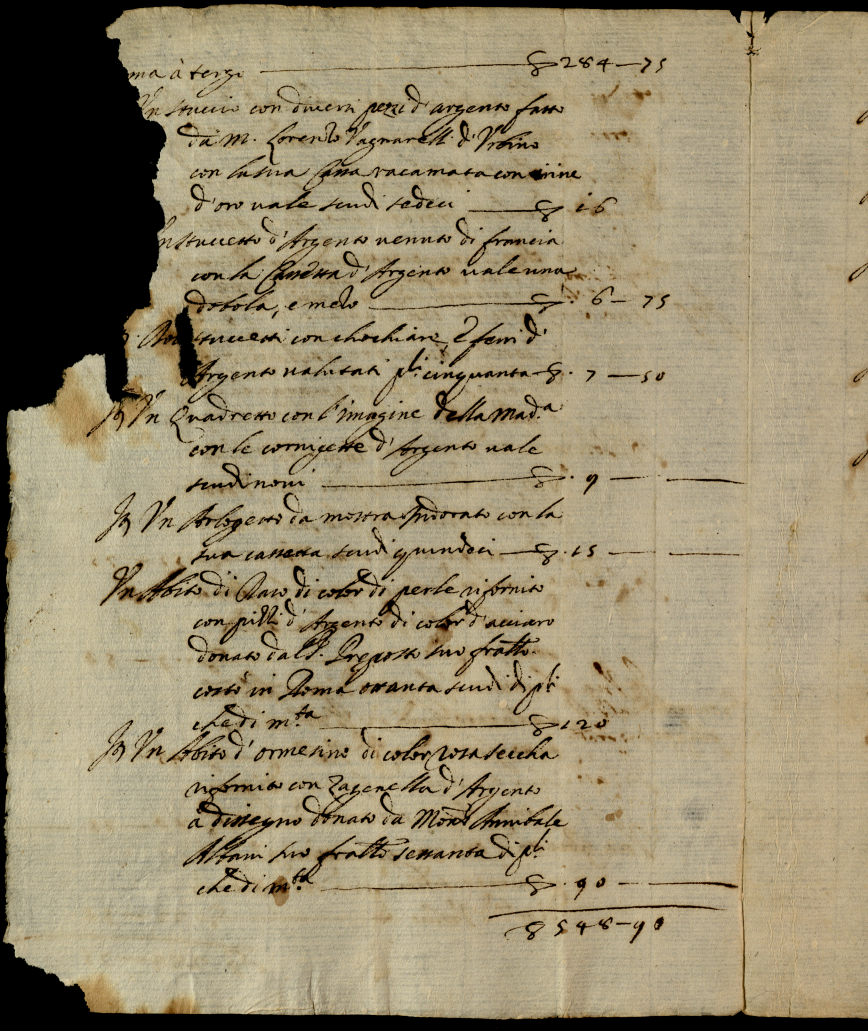 ma à tergo — 284–75
Un stuccio con diversi pezzi d'argento fatto
da m. Lorenzo Vagnarelli d'Urbino
con la sua Cassa racamata con
d'oro vale scudi sedeci — 16
stuccetto d'Argento venuto di francia
con la Cassetta d'Argento vale una
dobola, e mezo — 6–75
stuccetti con chochiare, e ferri d'
Argento valutati pli cinquanta — 7–50
Un Quadretto con l'imagine della Mad.a
con le cornigette d'Argento vale
scudi novi — 9 —
Un Orlogetto da mostra Indorato con la
sua cassetta scudi quindeci — 15 —
Un Abito di Raso di color di perle rifornito
con pizzi d'Argento di color d'acciaro
donato dal S. Preposto suo fratto.
costò in Roma ottanta scudi di pli
che di m.ta — 120
Un Abito d'ormesino di color rosa seccha
rifornito con zagenella d'Argento
à dissegno donato da Mons. Annibale
Albani suo fratto settanta di pli
che di m.ta — 90 —
548–90